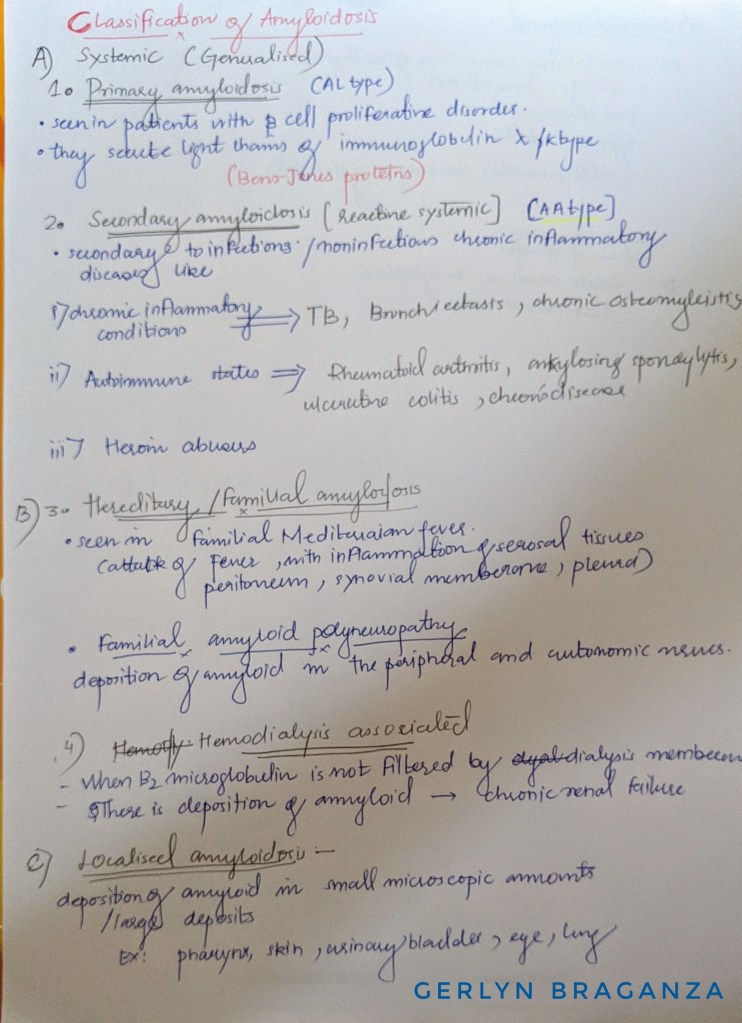 Classification of Amyloidosis
A) Systemic (Genualised)
1. Primary amyloidosis (AL type)
• seen in patients with β cell proliferative disorder.
• they secrete light chains of immunoglobulin λ /k type
(Bens-Jones proteins)
2. Secondary amyloidosis [Reactine systemic] (AA type]
• secondary to infections /noninfectious chronic inflammatory
diseases like
i) chromic inflammatory conditions ⇒ TB, Bronchiectasis, chronic osteomyleistis
ii) Autoimmune states ⇒ Rheumatoid arthritis, ankylosing spondylytis,
ulcerative colitis, chron's disease
iii) Heroin abusers
B) 3. Hereditary /Familial amyloidosis
• seen in familial Mediterraian fever.
(attack of Fever, with inflammation of serosal tissues
peritoneum, synovial memberane, pleura)
• Familial amyloid polyneuropathy
deposition of amyloid in the peripheral and autonomic nerves.
4) Hemodialysis associated
- When B₂ microglobulin is not filtered by dialysis membeun
- There is deposition of amyloid → chronic renal failure
C) Localised amyloidosis -
deposition of amyloid in small microscopic amounts
/large deposits
Ex: pharynx, skin, urinary bladder, eye, lung
GERLYN BRAGANZA